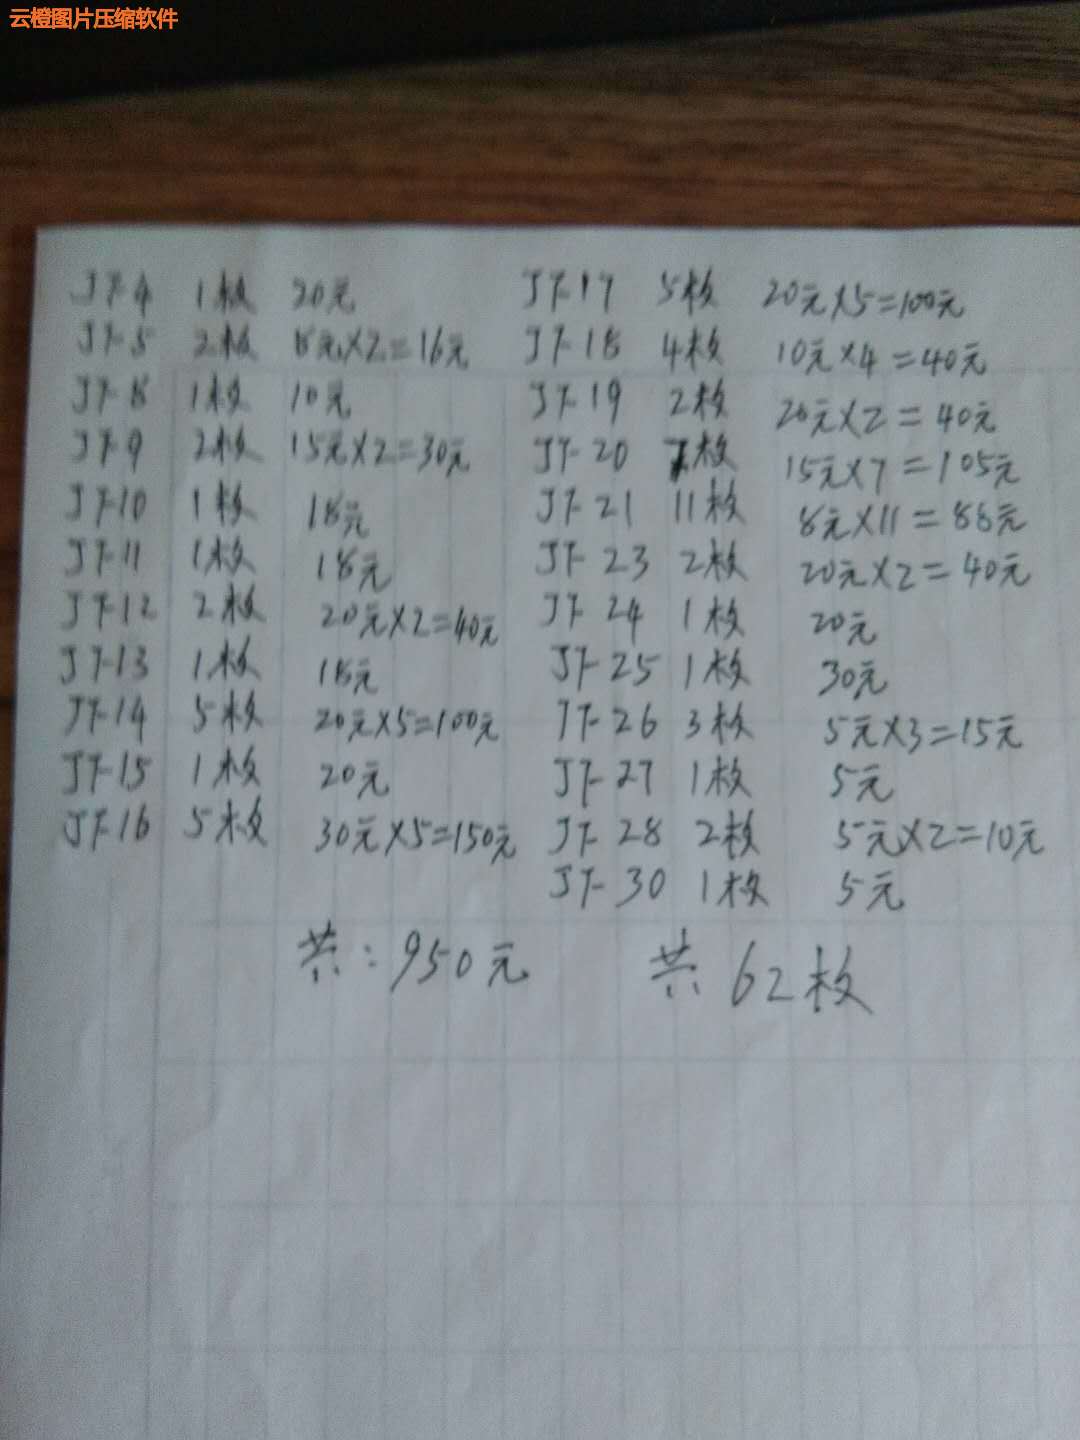 云橙图片压缩软件
JT-4 1枚 20元
JT-5 2枚 8元×2=16元
JT-8 1枚 10元
JT-9 2枚 15元×2=30元
JT-10 1枚 18元
JT-11 1枚 18元
JT-12 2枚 20元×2=40元
JT-13 1枚 18元
JT-14 5枚 20元×5=100元
JT-15 1枚 20元
JT-16 5枚 30元×5=150元
JT-17 5枚 20元×5=100元
JT-18 4枚 10元×4=40元
JT-19 2枚 20元×2=40元
JT-20 7枚 15元×7=105元
JT-21 11枚 8元×11=88元
JT-23 2枚 20元×2=40元
JT-24 1枚 20元
JT-25 1枚 30元
JT-26 3枚 5元×3=15元
JT-27 1枚 5元
JT-28 2枚 5元×2=10元
JT-30 1枚 5元
共:950元 共62枚